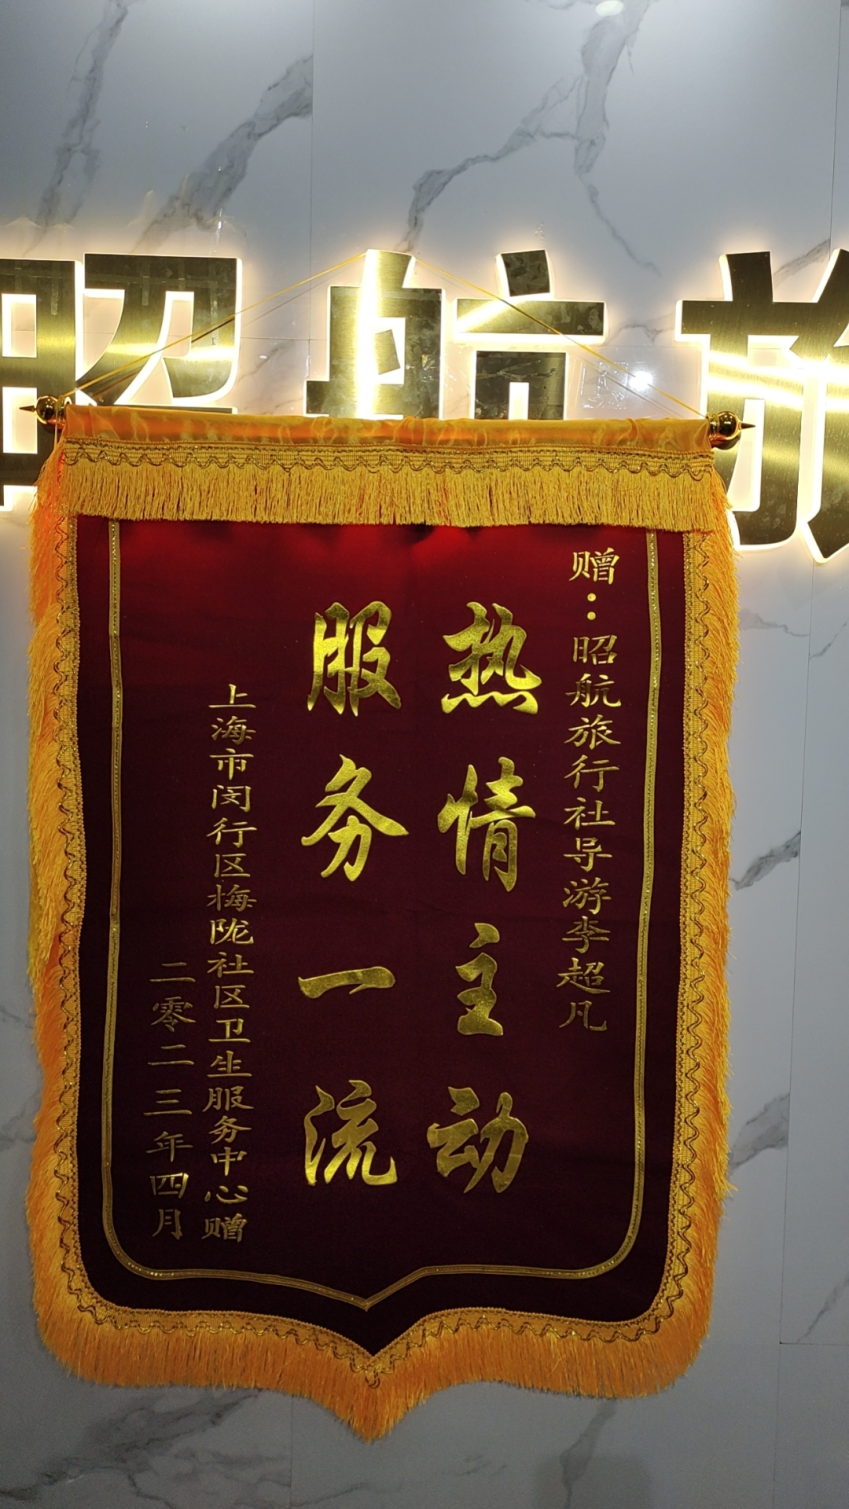 昭航旅
赠：昭航旅行社导游李超凡
热情主动
服务一流
上海市闵行区梅陇社区卫生服务中心赠
二零二三年四月